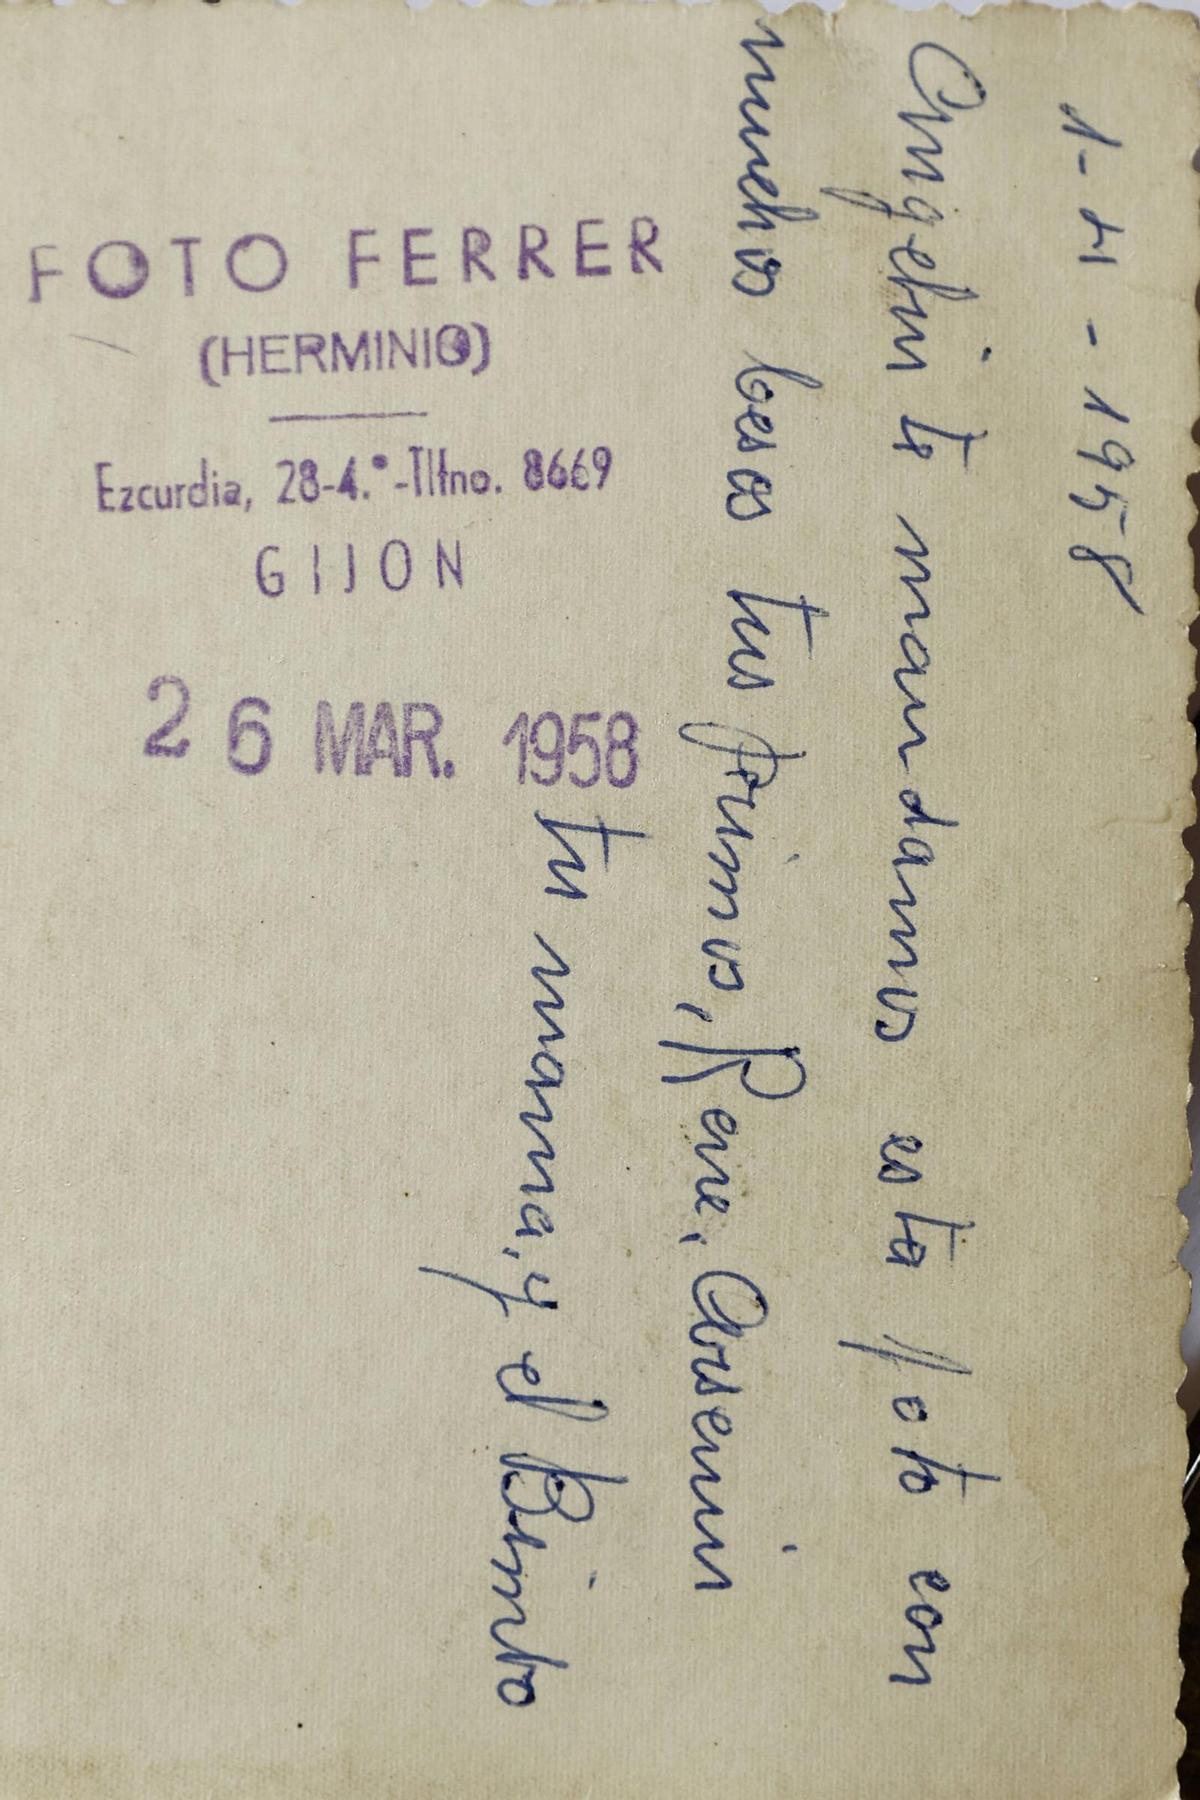 1-4-1958
Angelin te mandamos esta foto con
muchos besos tus primos, Rene, Arsenin
tu mama, y el Bimbo
FOTO FERRER
(HERMINIO)
Ezcurdia, 28-4.°-Tlfno. 8669
GIJON
26 MAR. 1958